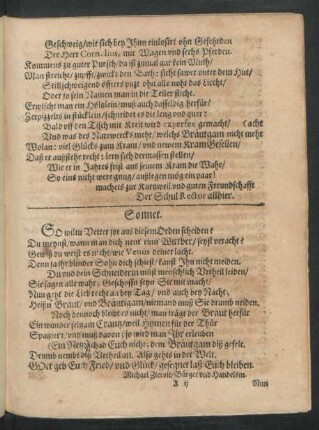 Geschweig/wie sich bey Ihm einlosirt ohn Gefehrden
Der Herr Cornelius, mit Wagen vnd sechs Pferden.
Kommens zu guter Pursch/da ist zumal gar kein Muth/
Man streicht/zupfft/zwickt den Barth: sieht sawer vnter dem Hut/
Stillschweigend öffters putzt ohn alle noht das Liecht/
Oder so sein Namen man in die Teller sticht.
Erwischt man ein Höltzlein/muß auch daffelbig herfür/
Zerspitzelts in stücklein/schneidet es die leng vnd quer:
Bald vff den Tisch mit Kreit wird experfex gemacht/ (acht
Vnd was des Narrwercks mehr/welchs Bräutgam nicht mehr
Wolan: viel Glücks zum Kram/vnd newem KramGesellen/
Daß er außstehe recht: lern sich dermassen stellen/
Wie er in Jahres frist aus seinem Kram die Wahr/
So eins nicht were gnug/außlegen mög ein paar!
machets zur Kurtzweil vnd guten Freundschafft
Der Schul Rector allhier.
Sonnet.
SO wiltu Vetter jtzt aus diesem Orden scheiden?
Du meynst/wann man dich nent' einn Wittber/seyst veracht?
Gewiß du weist es nicht/wie Venus deiner lacht.
Denn ja jhr blinder Sohn dich schiest/kanst Ihn nicht meiden.
Du vnd dein Schneiderin müß menschlich Vrtheil leiden/
Sie sagen alle wahr: Geschossn seyn Sie mit macht/
Nun gebt die Lieb recht an bey Tag/vnd auch bey Nacht:
Heissn Braut/vnd Bräutigam/niemand muß Sie drumb neiden.
Noch dennoch bleibt es nicht/man trägt der Braut herfür
Ein wunder seltzam Crantz/weil Hymen für der Thür
Spatzirt/vnd muß davon: so wird man Ihr erlauben
(Ein Netz) schad Euch nicht: dem Bräutgam diß gefelt.
Drumb wembs diß Vrtheil an. Also gehts in der Welt.
GOtt geb Euch Fried/vnd Glück/gesegnet laß Euch bleiben.
Michael Bürger vnd Handelsm.
A ij
Mun